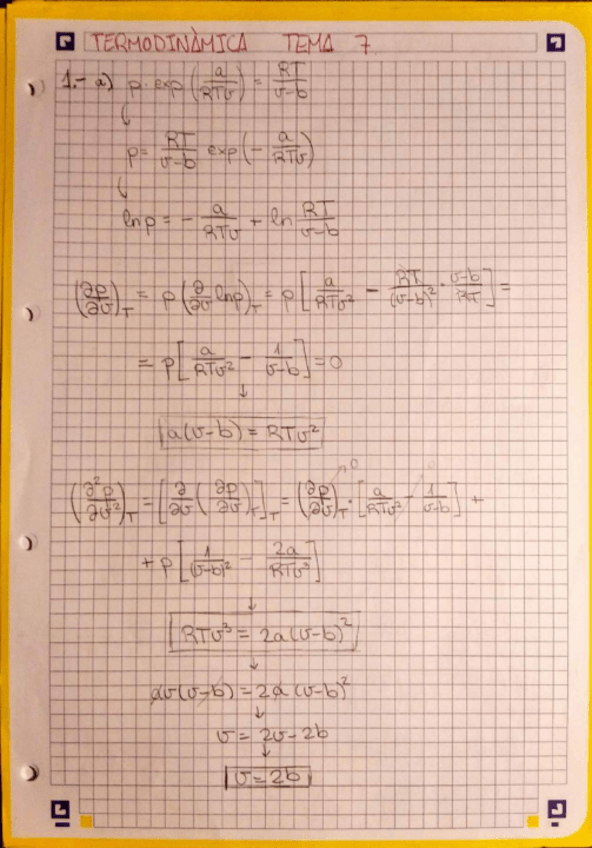 TERMODINÀMICA TEMA 7
1.- a) p · exp(a/RTv) = RT/v-b
p = RT/v-b exp(- a/RTv)
ln p = - a/RTv + ln RT/v-b
(∂p/∂v)_T = p(∂/∂v ln p)_T = p[a/RTv² - RT/(v-b)² · v-b/RT] =
= p[a/RTv² - 1/v-b] = 0
↓
a(v-b) = RTv²
(∂²p/∂v²)_T = [∂/∂v(∂p/∂v)_T]_T = (∂p/∂v)_T · [a/RTv² - 1/v-b] +
+ p[1/(v-b)² - 2a/RTv³]
↓
RTv³ = 2a(v-b)²
↓
av(v-b) = 2a(v-b)²
↓
v = 2v-2b
↓
v = 2b